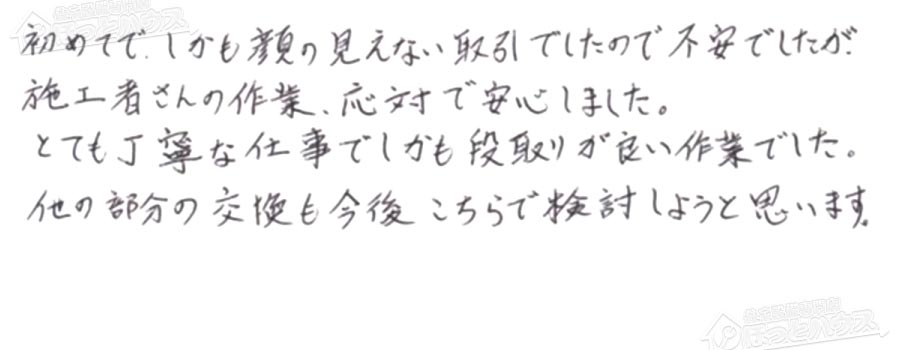 初めてで、しかも顔の見えない取引でしたので不安でしたが
施工者さんの作業、応対で安心しました。
とても丁寧な仕事でしかも段取りが良い作業でした。
他の部分の交換も今後こちらで検討しようと思います。
ほっとハウス